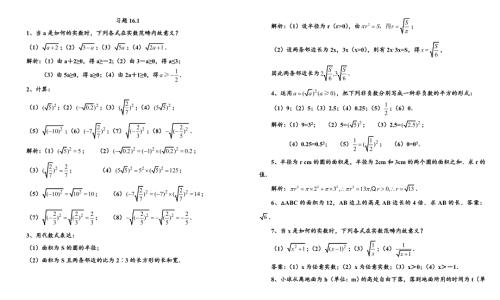 习题 16.1
1、当 a 是如何的实数时，下列各式在实数范畴内故意义？
（1）√(a+2)；（2）√(3−a)；（3）√(5a)；（4）√(2a+1)．
解析：（1）由 a＋2≥0，得 a≥－2；（2）由 3－a≥0，得 a≤3；
（3）由 5a≥0，得 a≥0；（4）由 2a＋1≥0，得 a≥−1/2．
2、计算：
（1）(√5)²；（2）(−√0.2)²；（3）(√(2/7))²；（4）(5√5)²；
（5）√((−10)²)；（6）(−7√(2/7))²；（7）√((−2/3)²)；（8）−√((−2/5)²)．
解析：（1）(√5)²=5；（2）(−√0.2)²=(−1)²×(√0.2)²=0.2；
（3）(√(2/7))²=2/7；（4）(5√5)²=5²×(√5)²=125；
（5）√((−10)²)=√(10²)=10；（6）(−7√(2/7))²=(−7)²×(√(2/7))²=14；
（7）√((−2/3)²)=√((2/3)²)=2/3；（8）−√((−2/5)²)=−√((2/5)²)=−2/5．
3、用代数式表达：
（1）面积为 S 的圆的半径；
（2）面积为 S 且两条邻边的比为 2︰3 的长方形的长和宽．
解析：（1）设半径为 r（r>0)，由 πr²=S，得r=√(S/π)；
（2）设两条邻边长为 2x，3x（x>0)，则有 2x·3x=S，得 x=√(S/6)，
因此两条邻边长为 2√(S/6),3√(S/6)．
4、运用 a=(√a)²(a≥0)，把下列非负数分别写成一种非负数的平方的形式：
（1）9；（2）5；（3）2.5；（4）0.25；（5）1/2；（6）0．
解析：（1）9=3²；（2）5=(√5)²；（3）2.5=(√2.5)²；
（4）0.25=0.5²；（5）1/2=(√(1/2))²；（6）0=0²．
5、半径为 r cm 的圆的面积是，半径为 2cm 和 3cm 的两个圆的面积之和．求 r 的
值．
解析：πr²=π×2²+π×3²,∴πr²=13π,Q r>0,∴r=√13．
6、△ABC 的面积为 12，AB 边上的高是 AB 边长的 4 倍．求 AB 的长．答案：
√6．
7、当 x 是如何的实数时，下列各式在实数范畴内故意义？
（1）√(x²+1)；（2）√((x−1)²)；（3）√(1/x)；（4）1/√(x+1)．
答案：（1）x 为任意实数；（2）x 为任意实数；（3）x＞0；（4）x＞－1．
8、小球从离地面为 h（单位：m）的高处自由下落，落到地面所用的时间为 t（单